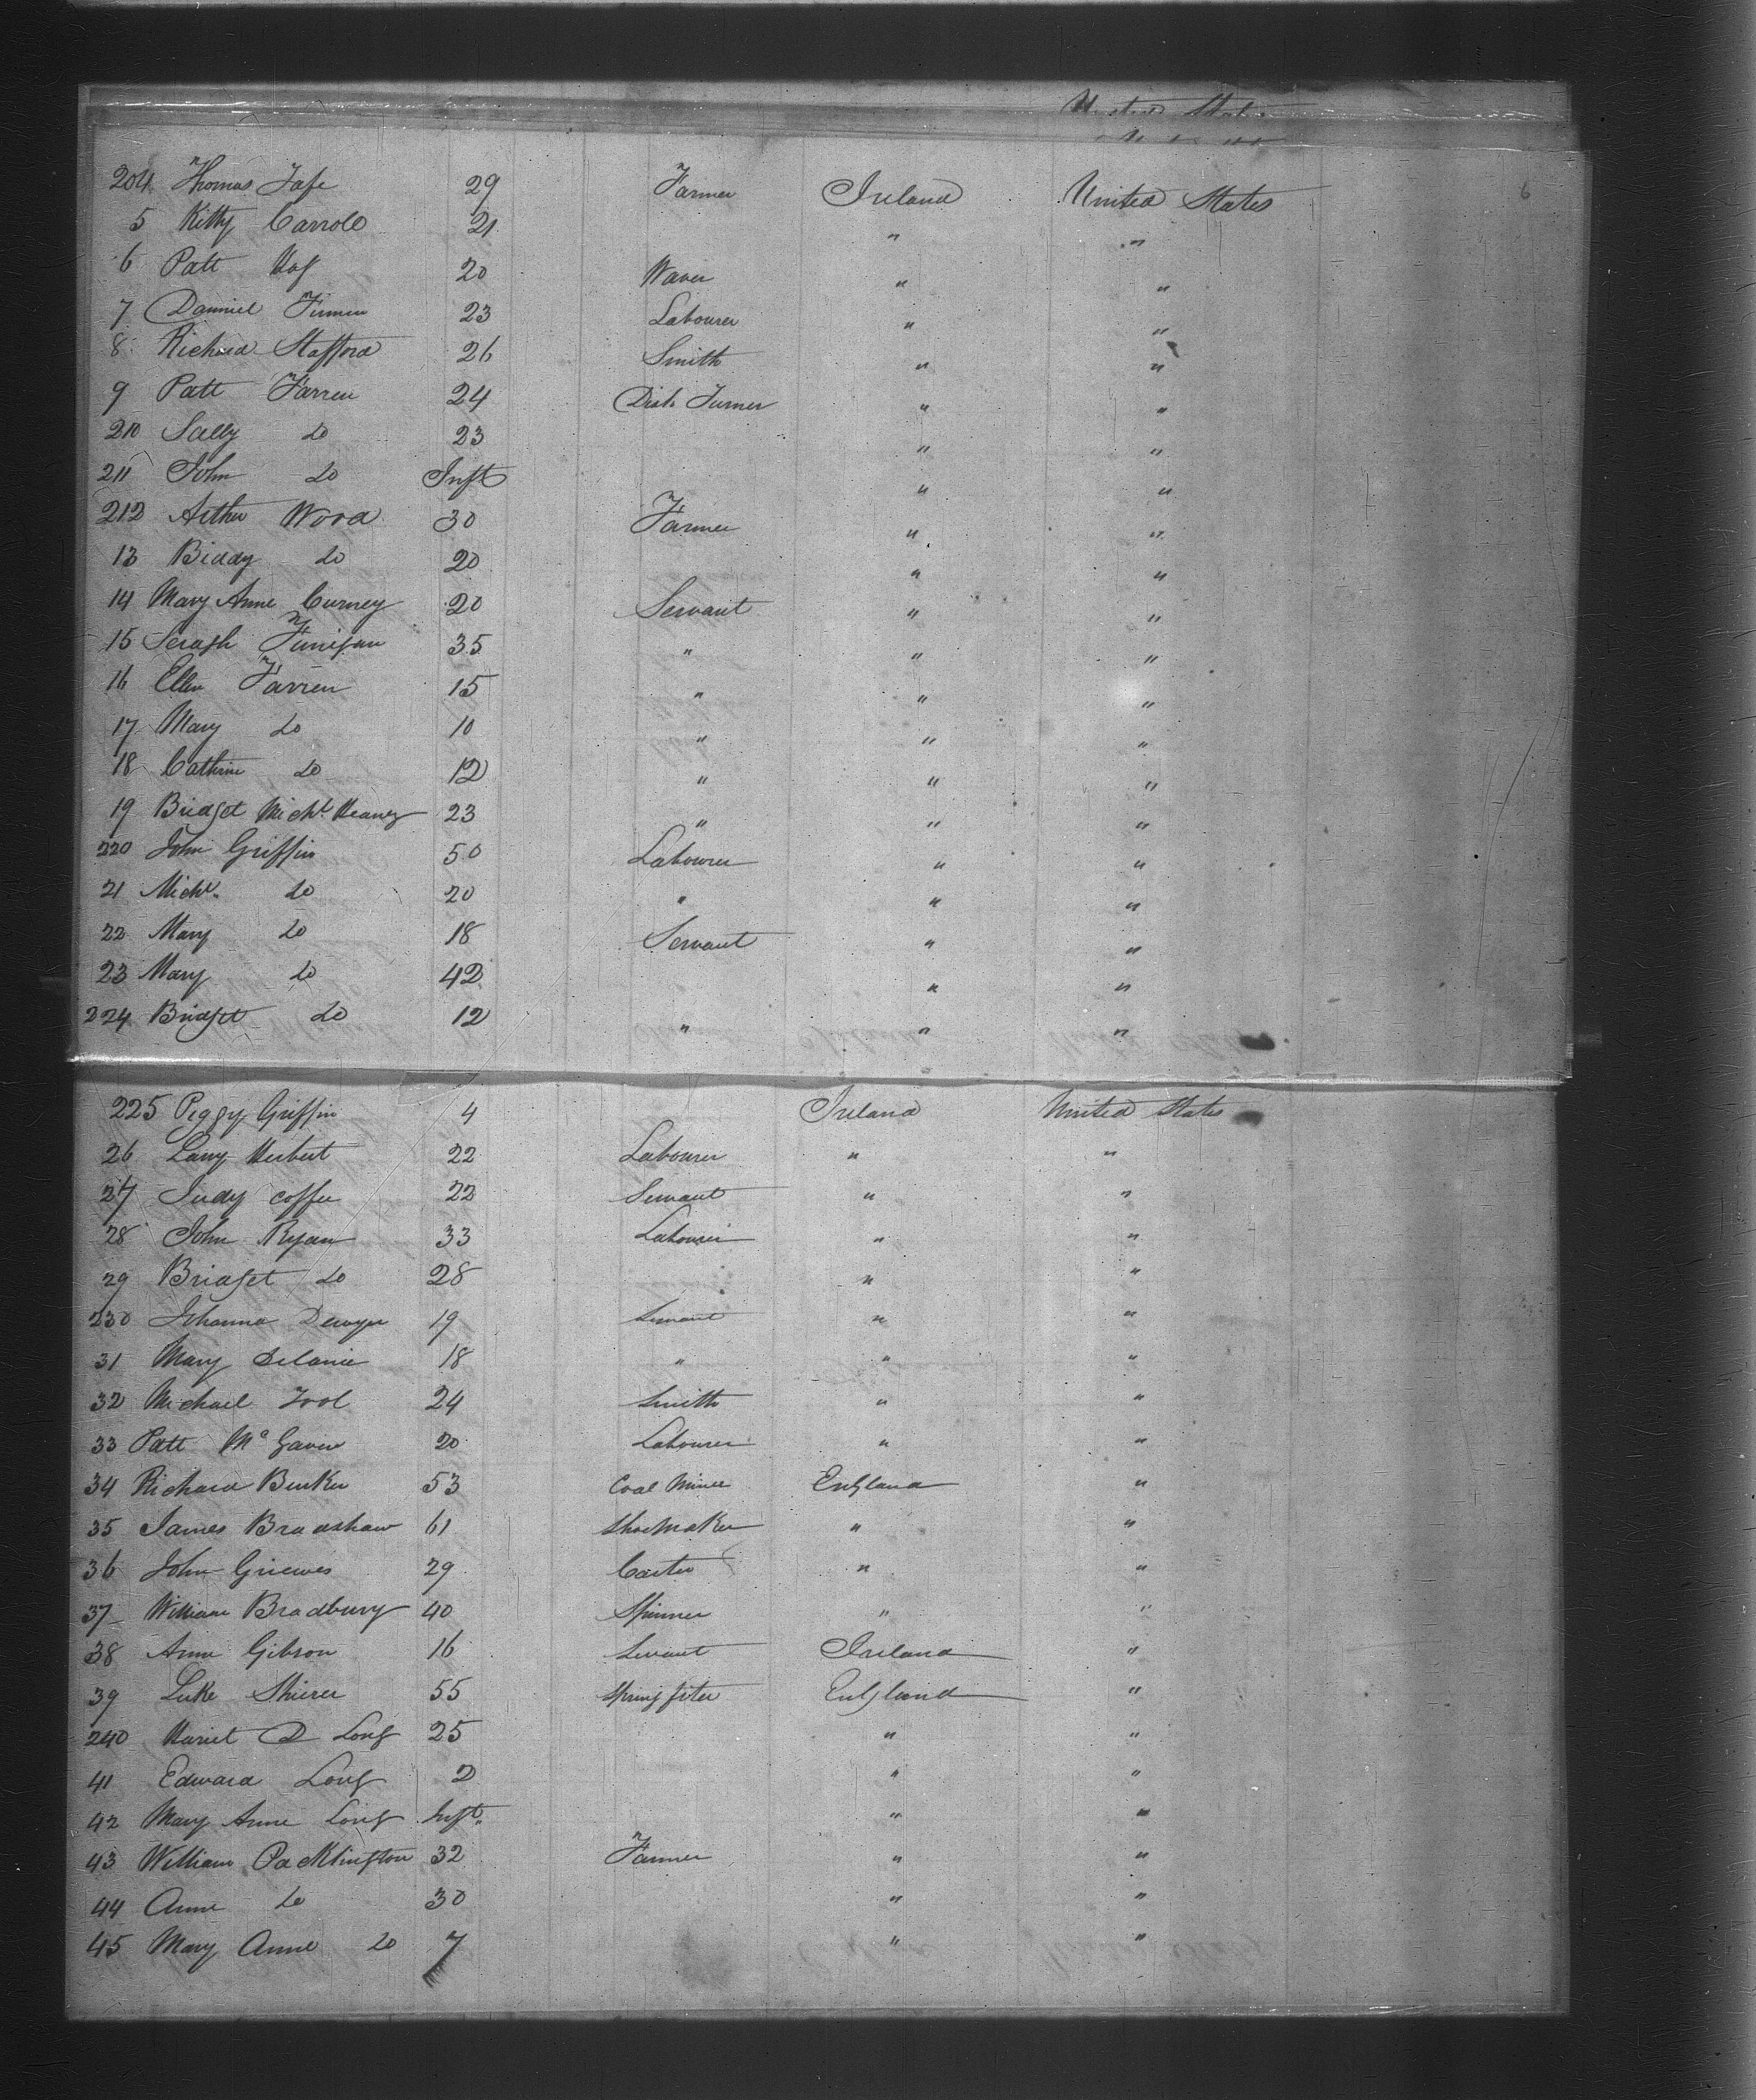 United States
6
204 Thomas Tafe 29 Farmer Ireland United States
5 Kitty Carroll 21 " "
6 Patt 20 Waver " "
7 Danniel 23 Labourer " "
8 Richard Stafford 26 Smith " "
9 Patt Farren 24 Dish Turner " "
210 Sally Do 23 " "
211 John Do Inft " "
212 Arthur Wood 30 Farmer " "
13 Biddy Do 20 " "
14 Mary Anne Curney 20 Servant " "
15 Seragh Finigan 35 " " "
16 Ellen Farren 15 " " "
17 Mary Do 10 " " "
18 Cathrine Do 12 " " "
19 Bridget Michl Heaney 23 " " "
220 John Griffin 50 Labourer " "
21 Michl. Do 20 " " "
22 Mary Do 18 Servant " "
23 Mary Do 42 " "
224 Bridget Do 12 " " "
225 Peggy Griffin 4 Ireland United States
26 Larry Herbert 22 Labourer " "
27 Judy Coffee 22 Servant " "
28 John Ryan 33 Labourer " "
29 Bridget Do 28 " "
230 Johanna Dewyer 19 Servant " "
31 Mary Delanie 18 " " "
32 Michael Tool 24 Smith " "
33 Patt Mc Gavin 20 Labourer " "
34 Richard Bunker 53 Coal Miner England "
35 James Bradshaw 61 Shoemaker " "
36 John Grieves 29 Carter " "
37 William Bradbury 40 Spinner " "
38 Anne Gibson 16 Servant Ireland "
39 Luke Shierer 55 Spring fiter England "
240 Hariet D Long 25 " "
41 Edward Long 2 " "
42 Mary Anne Long Inft. " "
43 William Pocklington 32 Farmer " "
44 Anne Do 30 " "
45 Mary Anne Do 7 " "